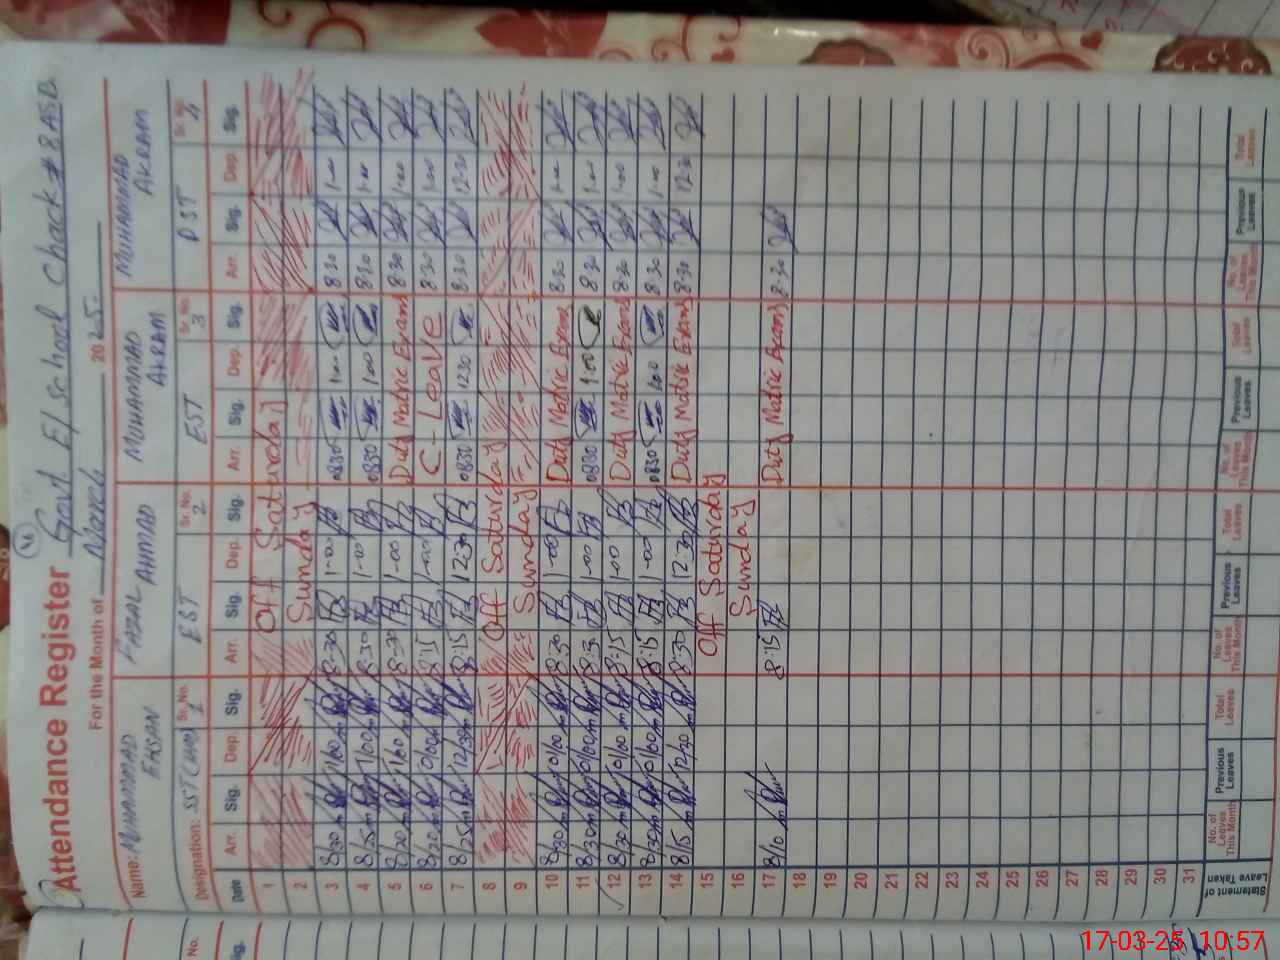 Attendance Register Govt E/ school Chack # 8 ASB
For the Month of March 2025
Name: MUHAMMAD EHSAN FAZAL AHMAD MUHAMMAD AKRAM MUHAMMAD AKRAM
Designation: SST Sr. No. 1 EST Sr. No. 2 EST Sr. No. 3 PST Sr. No. 4
Date Arr. Sig. Dep. Sig. Arr. Sig. Dep. Sig. Arr. Sig. Dep. Sig. Arr. Sig. Dep. Sig.
1 Off Saturday
2 Sunday
3 8/30 1/00 8:30 1-00 0830 1:00 8:30 1-00
4 8/25 1/00 8:30 1-00 0830 1:00 8:30 1-00
5 8/20 1/00 8:30 1-00 Duty Matric Exam 8:30 1-00
6 8/20 0/00 8:15 1-00 C - Leave 8:30 1-00
7 8/25 12/30 8:15 12:30 0830 1230 8:30 12:30
8 Off Saturday
9 Sunday
10 8/30 01/00 8:30 1-00 Duty Matric Exam 8:30 1-00
11 8/30 01/00 8:30 1-00 0830 1:00 8:30 1-00
12 8/30 01/00 8:15 1-00 Duty Matric Exam 8:30 1-00
13 8/30 01/00 8:15 1-00 0830 8:30 1-00
14 8/15 12/30 8:30 12:30 Duty Matric Exam 8:30 12:30
15 Off Saturday
16 Sunday
17 8/10 8:15 Duty Matric Exam 8:30
18
19
20
21
22
23
24
25
26
27
28
29
30
31
Statement of Leave Taken No. of Leaves This Month Previous Leaves Total Leaves No. of Leaves This Month Previous Leaves Total Leaves No. of Leaves This Month Previous Leaves Total Leaves No. of Leaves This Month Previous Leaves Total Leaves
No.
Sig.
17-03-25 10:57